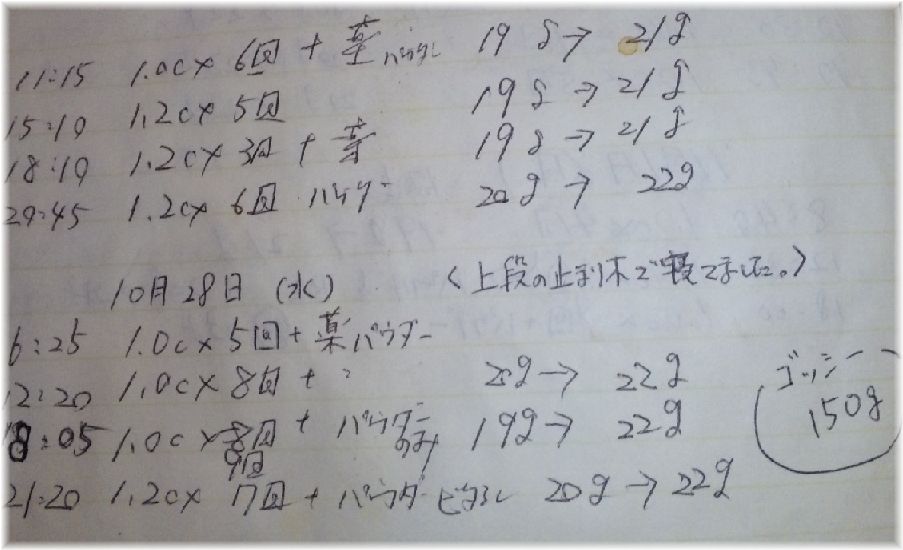 11:15 1.0c× 6回 + 薬 19g→ 21g
15:10 1.2c× 5回 19g → 21g
18:10 1.2c× 3回 + 薬 19g → 21g
20:45 1.2c× 6回 パウダー 20g → 22g
10月28日 (水) 〈上段の止まり木で寝てました。〉
6:25 1.0c×5回+薬パウダー
12:20 1.0c× 8回 + 20g→ 22g
18:05 1.0c × 8回 + パウダーのみ 19g→ 22g
9回
21:20 1.2c× 7回 + パウダー 20g → 22g
ゴッシー
150g